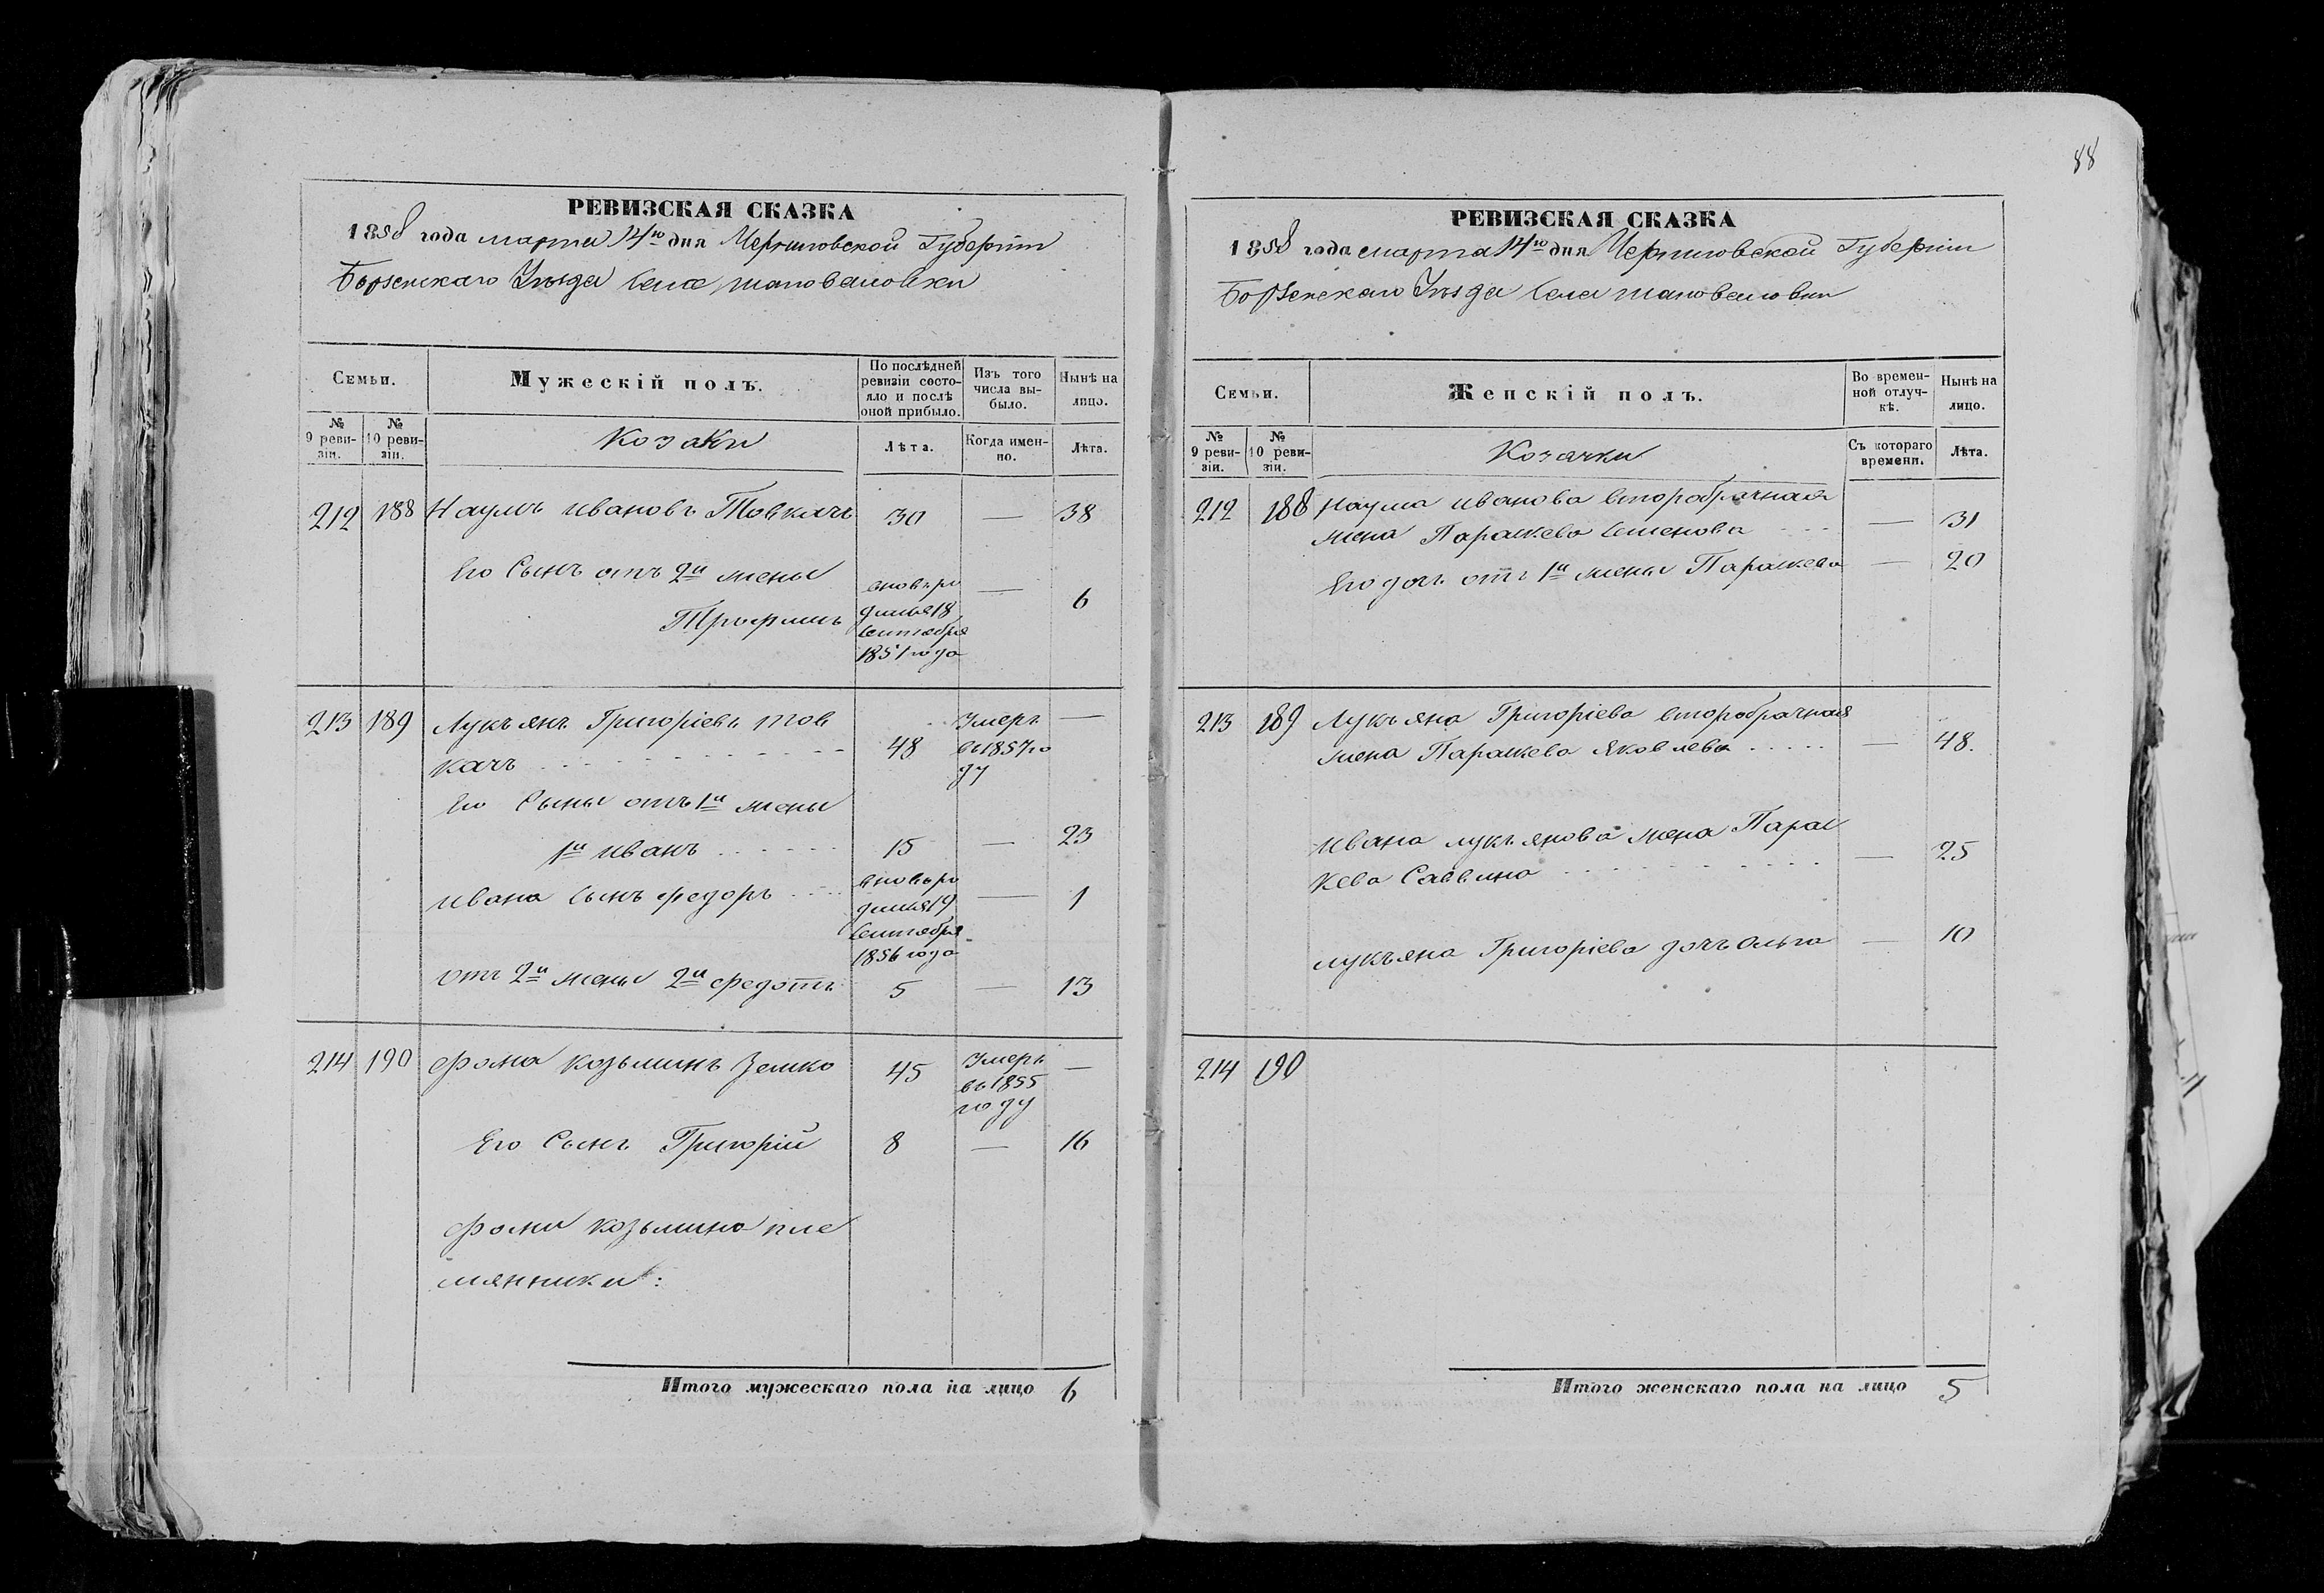 РЕВИЗСКАЯ СКАЗКА
1858 года марта 14го дня Черниговской Губерніи
Борзенскаго Уѣзда Села Шаповаловки
Семьи.
Мужескій полъ.
По послѣдней ревизіи состояло и послѣ оной прибыло.
Изъ того числа выбыло.
Нынѣ на лицо.
№ 9 ревизіи.
№ 10 ревизіи.
Козаки
Лѣта.
Когда именно.
Лѣта.
212 188 Наумъ Ивановъ Товкачъ 30 — 38
Его Сынъ отъ 2й жены
Трофимъ
вновь ро
дился 18
Сентября
1851 года
— 6
213 189 Лукьянъ Григоріевъ Тов
качъ 48
Умеръ
въ 1857 го
ду
—
Его Сыны отъ 1й жены
1й Иванъ 15 — 23
Ивана Сынъ Федоръ
вновь ро
дился 19
Сентября
1856 года
— 1
отъ 2й жены 2й Федотъ 5 — 13
214 190 Фома Козьминъ Земко 45
Умеръ
въ 1855
году
—
Его Сынъ Григорій 8 — 16
Фомы Козьмина пле
мянники:
Итого мужескаго пола на лицо 6
88
РЕВИЗСКАЯ СКАЗКА
1858 года марта 14го дня Черниговской Губерніи
Борзенскаго Уѣзда Села Шаповаловки
Семьи.
Женскій полъ.
Во временной отлучкѣ.
Нынѣ на лицо.
№ 9 ревизіи.
№ 10 ревизіи.
Козачки
Съ котораго времени.
Лѣта.
212 188 Наума Иванова второбрачная
жена Параскева Семенова — 31
Его дочь отъ 1й жены Параскева — 20
213 189 Лукьяна Григоріева второбрачная
жена Параскева Яковлева — 48.
Ивана Лукьянова жена Парас
кева Саввина — 25
Лукьяна Григоріева дочь Ольга — 10
214 190
Итого женскаго пола на лицо 5